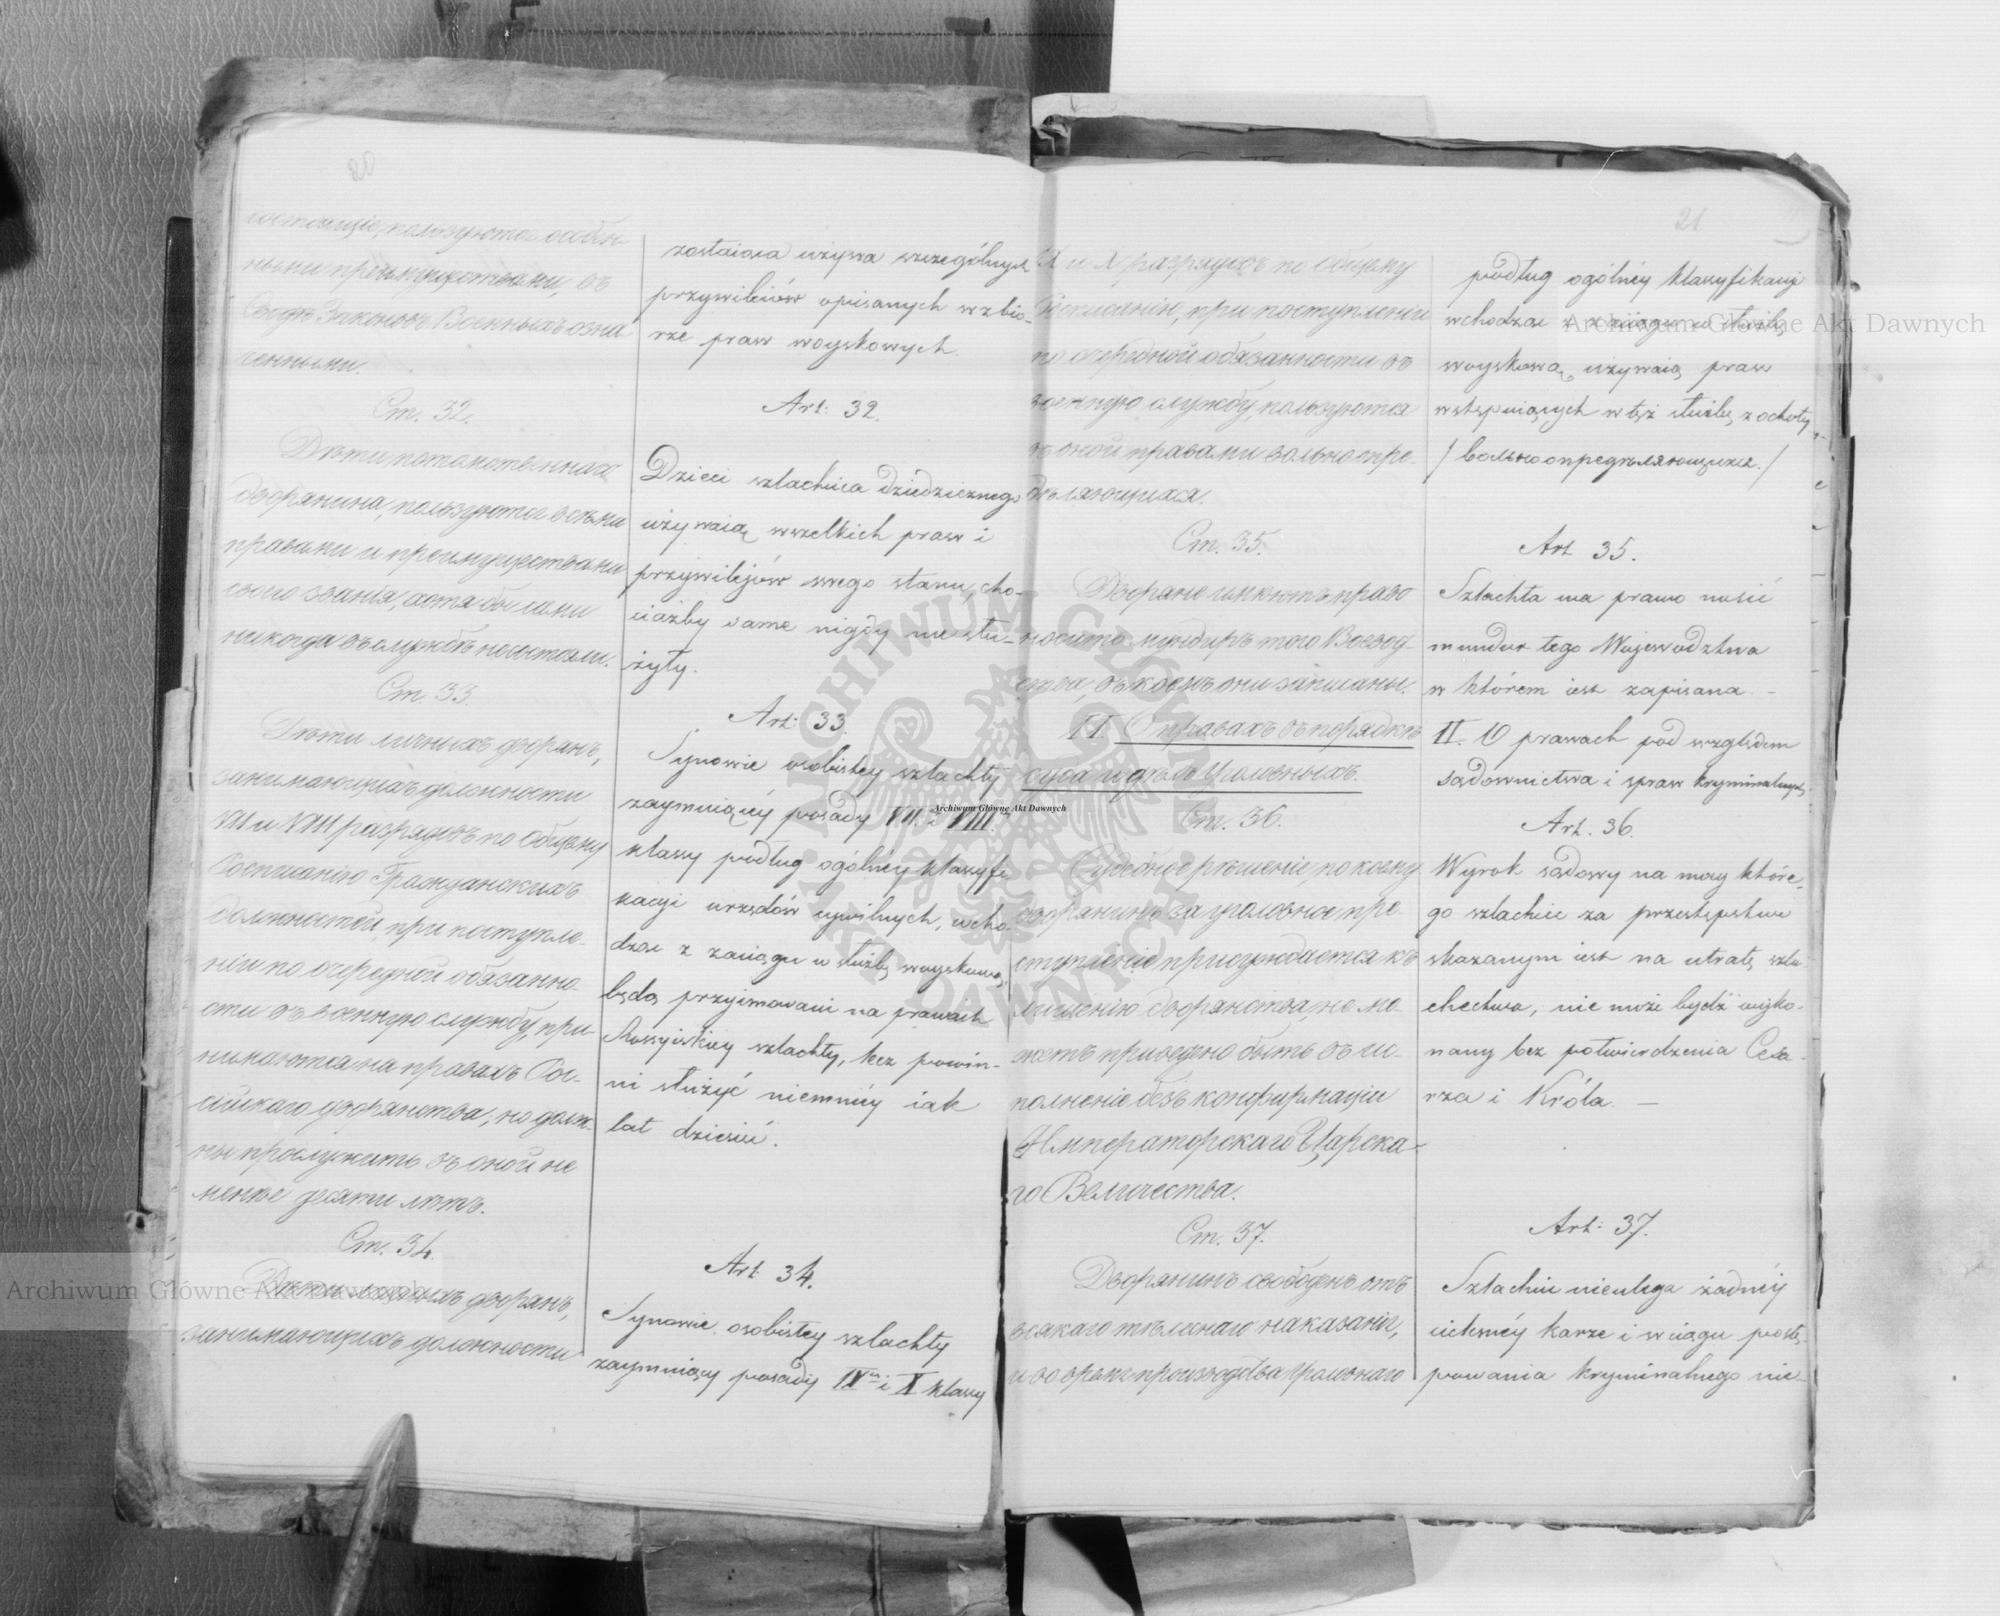 20
состоящіе, пользуются особен-
ными преимуществами, въ
Сводѣ Законовъ Военныхъ озна
ченными.
Ст. 32.
Дѣти потомственнаго
дворянина, пользуются всѣми
правами и преимуществами
своего званія, хотя бы сами
никогда въ службѣ несостояли.
Ст. 33.
Дѣти личныхъ дворянъ,
занимающихъ должности
VII и VIII разрядовъ по Общему
Росписанію Гражданскихъ
должностей, при поступле-
ніи по очередной обязанно-
сти въ военную службу, при
нимаются на правахъ Рос-
сійскаго дворянства, но долж-
ны прослужить въ оной не
менѣе десяти лѣтъ.
Ст. 34.
Дѣти личныхъ дворянъ,
занимающихъ должности
zostaiąca używa szczególnych
przywileiów opisanych w zbio-
rze praw woyskowych.
Art: 32.
Dzieci szlachcica dziedzicznego
używaią wszelkich praw i
przywilejów swego stanu, cho-
ciażby same nigdy nie słu-
żyły.
Art: 33.
Synowie osobistey szlachty
zaymuiącéy posady VII i VIII
klassy podług ogólnéy klassyfi
kacyi urzędów cywilnych, wcho
dząc z zaciągu w służbę woyskową,
będą przyimowani na prawach
Rossyiskiey szlachty, lecz powin-
ni służyć niemniéy iak
lat dziesięć.
Art: 34.
Synowie osobistey szlachty
zaymuiącey posady IX i X klassy
21
IX и X разрядовъ по Общему
Росписанію, при поступленіи
по очередной обязанности въ
военную службу, пользуются
въ оной правами вольноопре-
дѣляющихся.
Ст. 35.
Дворяне имѣютъ право
носить мундиръ того Воевод-
ства, въ коемъ они записаны.
II. О правахъ въ порядкѣ
суда и дѣлъ Уголовныхъ.
Ст. 36.
Судебное рѣшеніе, по коему
дворянинъ за уголовное пре-
ступленіе присуждается къ
лишенію дворянства, не мо
жетъ приведено быть въ ис-
полненіе безъ конфирмаціи
Императорскаго Царска-
го Величества.
Ст. 37.
Дворянинъ свободенъ отъ
всякаго тѣлеснаго наказанія,
и во время производства Уголовнаго
podług ogólnéy klassyfikacyi
wchodząc z zaciągu w służbę
woyskową, używaią praw
wstępuiących w téż służbę z ochoty
/ вольноопредѣляющихся. /
Art 35.
Szlachta ma prawo nosić
mundur tego Województwa
w którem iest zapisana –
II. O prawach pod względem
sądownictwa i spraw kryminalnych,
Art. 36.
Wyrok sądowy na mocy które-
go szlachcic za przestępstwo
skazanym iest na utratę szla-
chectwa, nie może bydź wyko-
nany bez potwierdzenia Cesa-
rza i Króla. –
Art: 37.
Szlachcic nieulega żadnéy
cielesnéy karze i w ciągu postę-
powania kryminalnego nie-
Archiwum Główne Akt Dawnych
Archiwum Główne Akt Dawnych
Archiwum Główne Akt Dawnych
ARCHIWUM GŁÓWNE AKT DAWNYCH